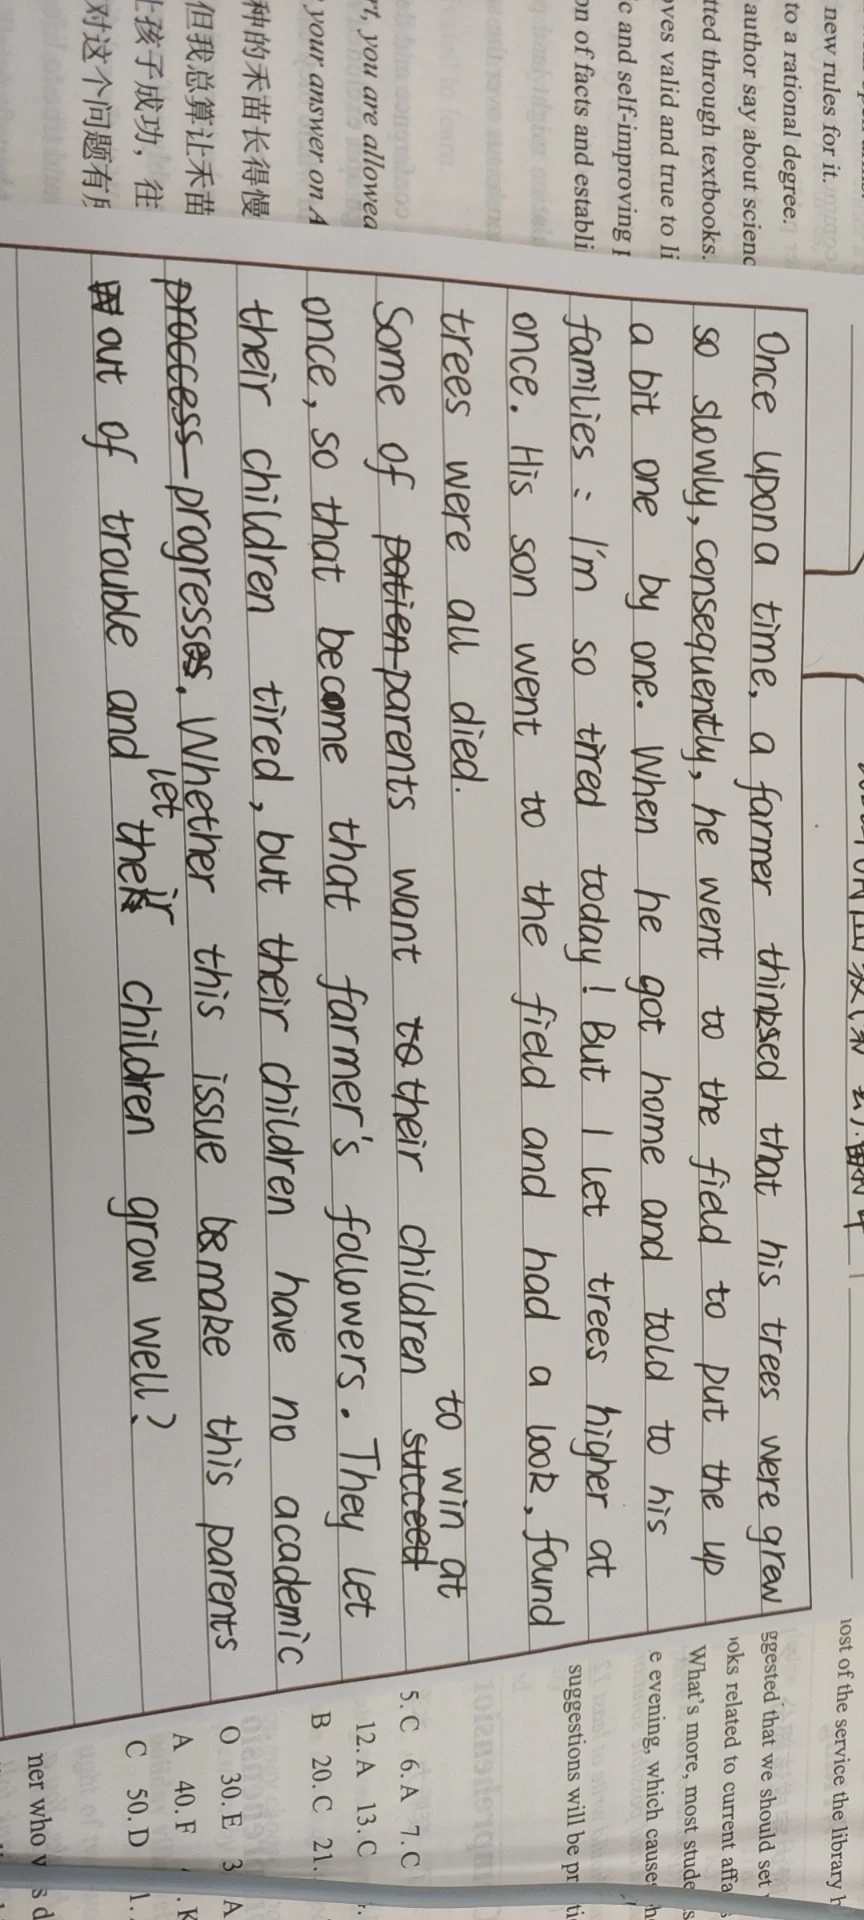 new rules for it.
to a rational degree.
author say about scienc
tted through textbooks.
oves valid and true to li
c and self-improving p
on of facts and establi
rt, you are allowed
your answer on A
种的禾苗长得慢
但我总算让禾苗
让孩子成功，往
对这个问题有所
Once upon a time, a farmer thinksed that his trees were grew
so slowly, consequently, he went to the field to put the up
a bit one by one. When he got home and told to his
families : I'm so tired today! But I let trees higher at
once. His son went to the field and had a look, found
trees were all died.
Some of patien parents want to their children succeed to win at
once, so that become that farmer's followers. They let
their children tired, but their children have no academic
proccess progresses. Whether this issue be make this parents
out of trouble and let their children grow well?
most of the service the library h
ggested that we should set
ooks related to current affa
What's more, most stude
e evening, which cause
suggestions will be pr
5. C 6. A 7. C
12. A 13. C
B 20. C 21.
O 30. E 3 A
A 40. F
C 50. D 1.
ner who v s d